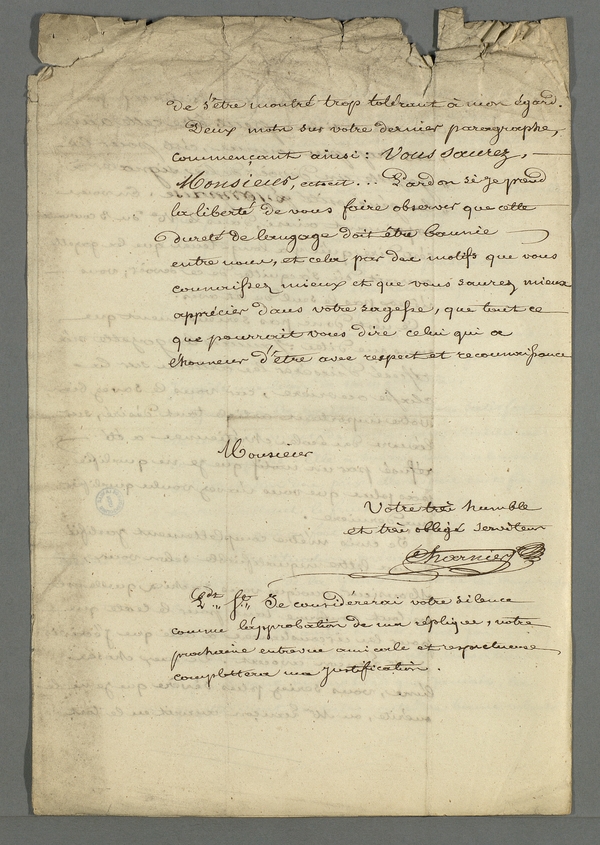 de s'être montré trop tolérant à mon égard.
Deux mots sur votre dernier paragraphe,
commençant ainsi : Vous saurez,
Monsieur, ... Pardon si je prend
la liberté de vous faire observer que cette
dureté de langage doit être bannie
entre nous, et cela par des motifs que vous
connaissez mieux et que vous saurez mieux
apprécier dans votre sagesse, que tout ce
que pourrait vous dire celui qui a
l'honneur d'être avec respect et reconnaissance
Monsieur
Votre très humble
et très obligé serviteur
Charnier
Je considérerai votre silence
comme l'approbation de ma réplique, votre
prochaine entrevue amicale et respectueuse
complettera ma justification.